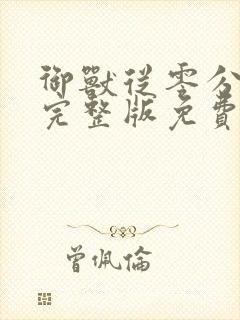 御獸從零分
完整版免費
曾佩倫